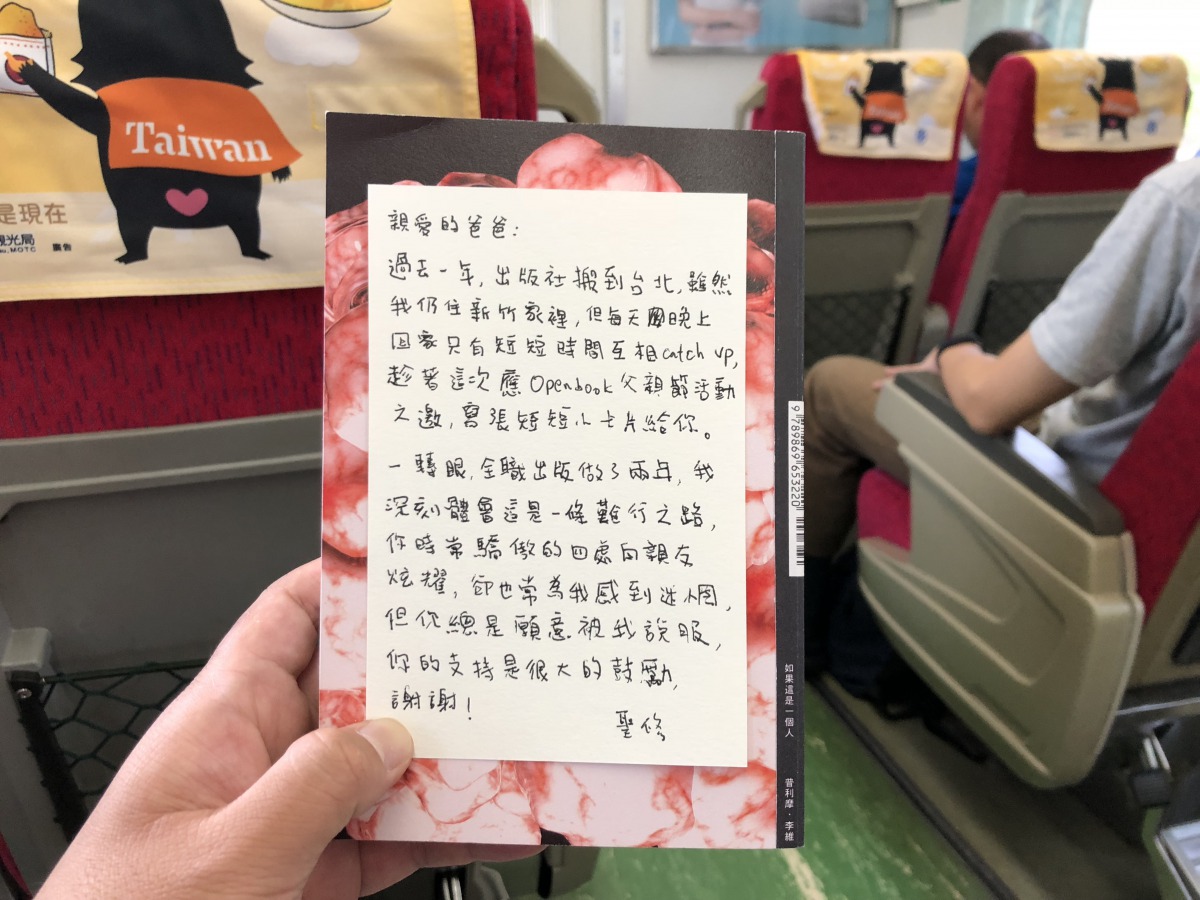 Taiwan
是現在
觀光局
廣告
親愛的爸爸：
過去一年，出版社搬到台北，雖然
我仍住新竹家裡，但每天晚上
回家只有短短時間互相catch up，
趁著這次應Openbook父親節活動
之邀，寫張短短小卡片給你。
一轉眼，全職出版做了兩年，我
深刻體會這是一條難行之路，
你時常驕傲的四處向親友
炫耀，卻也常為我感到迷惘，
但你總是願意被我說服，
你的支持是很大的鼓勵，
謝謝！
聖修
9 789869 653220
如果這是一個人
普利摩·李維